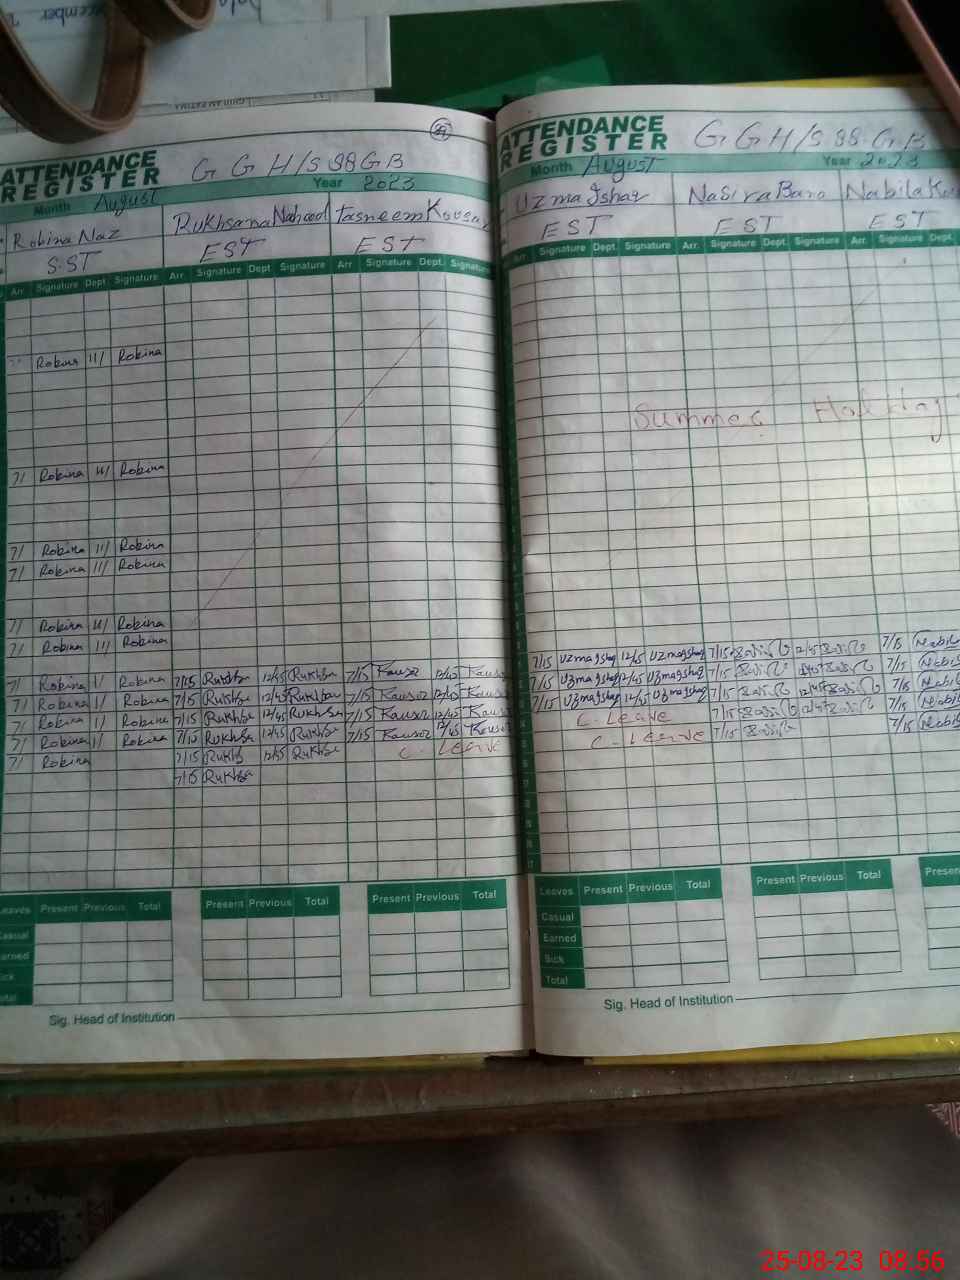 ATTENDANCE
REGISTER
G G H/S 98 GB
Month August Year 2023
Robina Naz Rukhsana Naheed Tasneem Kousar
S.ST EST EST
Arr. Signature Dept. Signature Arr. Signature Dept. Signature Arr. Signature Dept. Signature
Robina 11/ Robina
7/ Robina 11/ Robina
7/ Robina 11/ Robina
7/ Robina 11/ Robina
7/ Robina 11/ Robina
7/ Robina 11/ Robina
7/ Robina 1/ Robina 7/15 Rukhsa 12/45 Rukhsa 7/15 Kausar 12/45 Kausar
7/ Robina 1/ Robina 7/15 Rukhsa 12/45 Rukhsa 7/15 Kausar 12/45 Kausar
7/ Robina 1/ Robina 7/15 Rukhsa 12/45 Rukhsa 7/15 Kausar 12/45 Kausar
7/ Robina 1/ Robina 7/15 Rukhsa 12/45 Rukhsa 7/15 Kausar 12/45 Kausar
7/ Robina 7/15 Rukhsa 12/45 Rukhsa C. Leave
7/15 Rukhsa
Leaves Present Previous Total Present Previous Total Present Previous Total
Casual
Earned
Sick
Total
Sig. Head of Institution
ATTENDANCE
REGISTER
G G H/S 98 G.B
Month August Year 2023
Uzma Ishaq Nasira Bano Nabila
EST EST EST
Arr. Signature Dept. Signature Arr. Signature Dept. Signature Arr. Signature Dept.
Summer Holiday
7/15 Uzma Ishaq 12/45 Uzma Ishaq 7/15 12/45 7/15 Nabila
7/15 Uzma Ishaq 12/45 Uzma Ishaq 7/15 12/45 7/15 Nabila
7/15 Uzma Ishaq 12/45 Uzma Ishaq 7/15 12/45 7/15 Nabila
C. Leave 7/15 12/45 7/15 Nabila
C. Leave 7/15 7/15 Nabila
Leaves Present Previous Total Present Previous Total Present
Casual
Earned
Sick
Total
Sig. Head of Institution
25-08-23 08.56